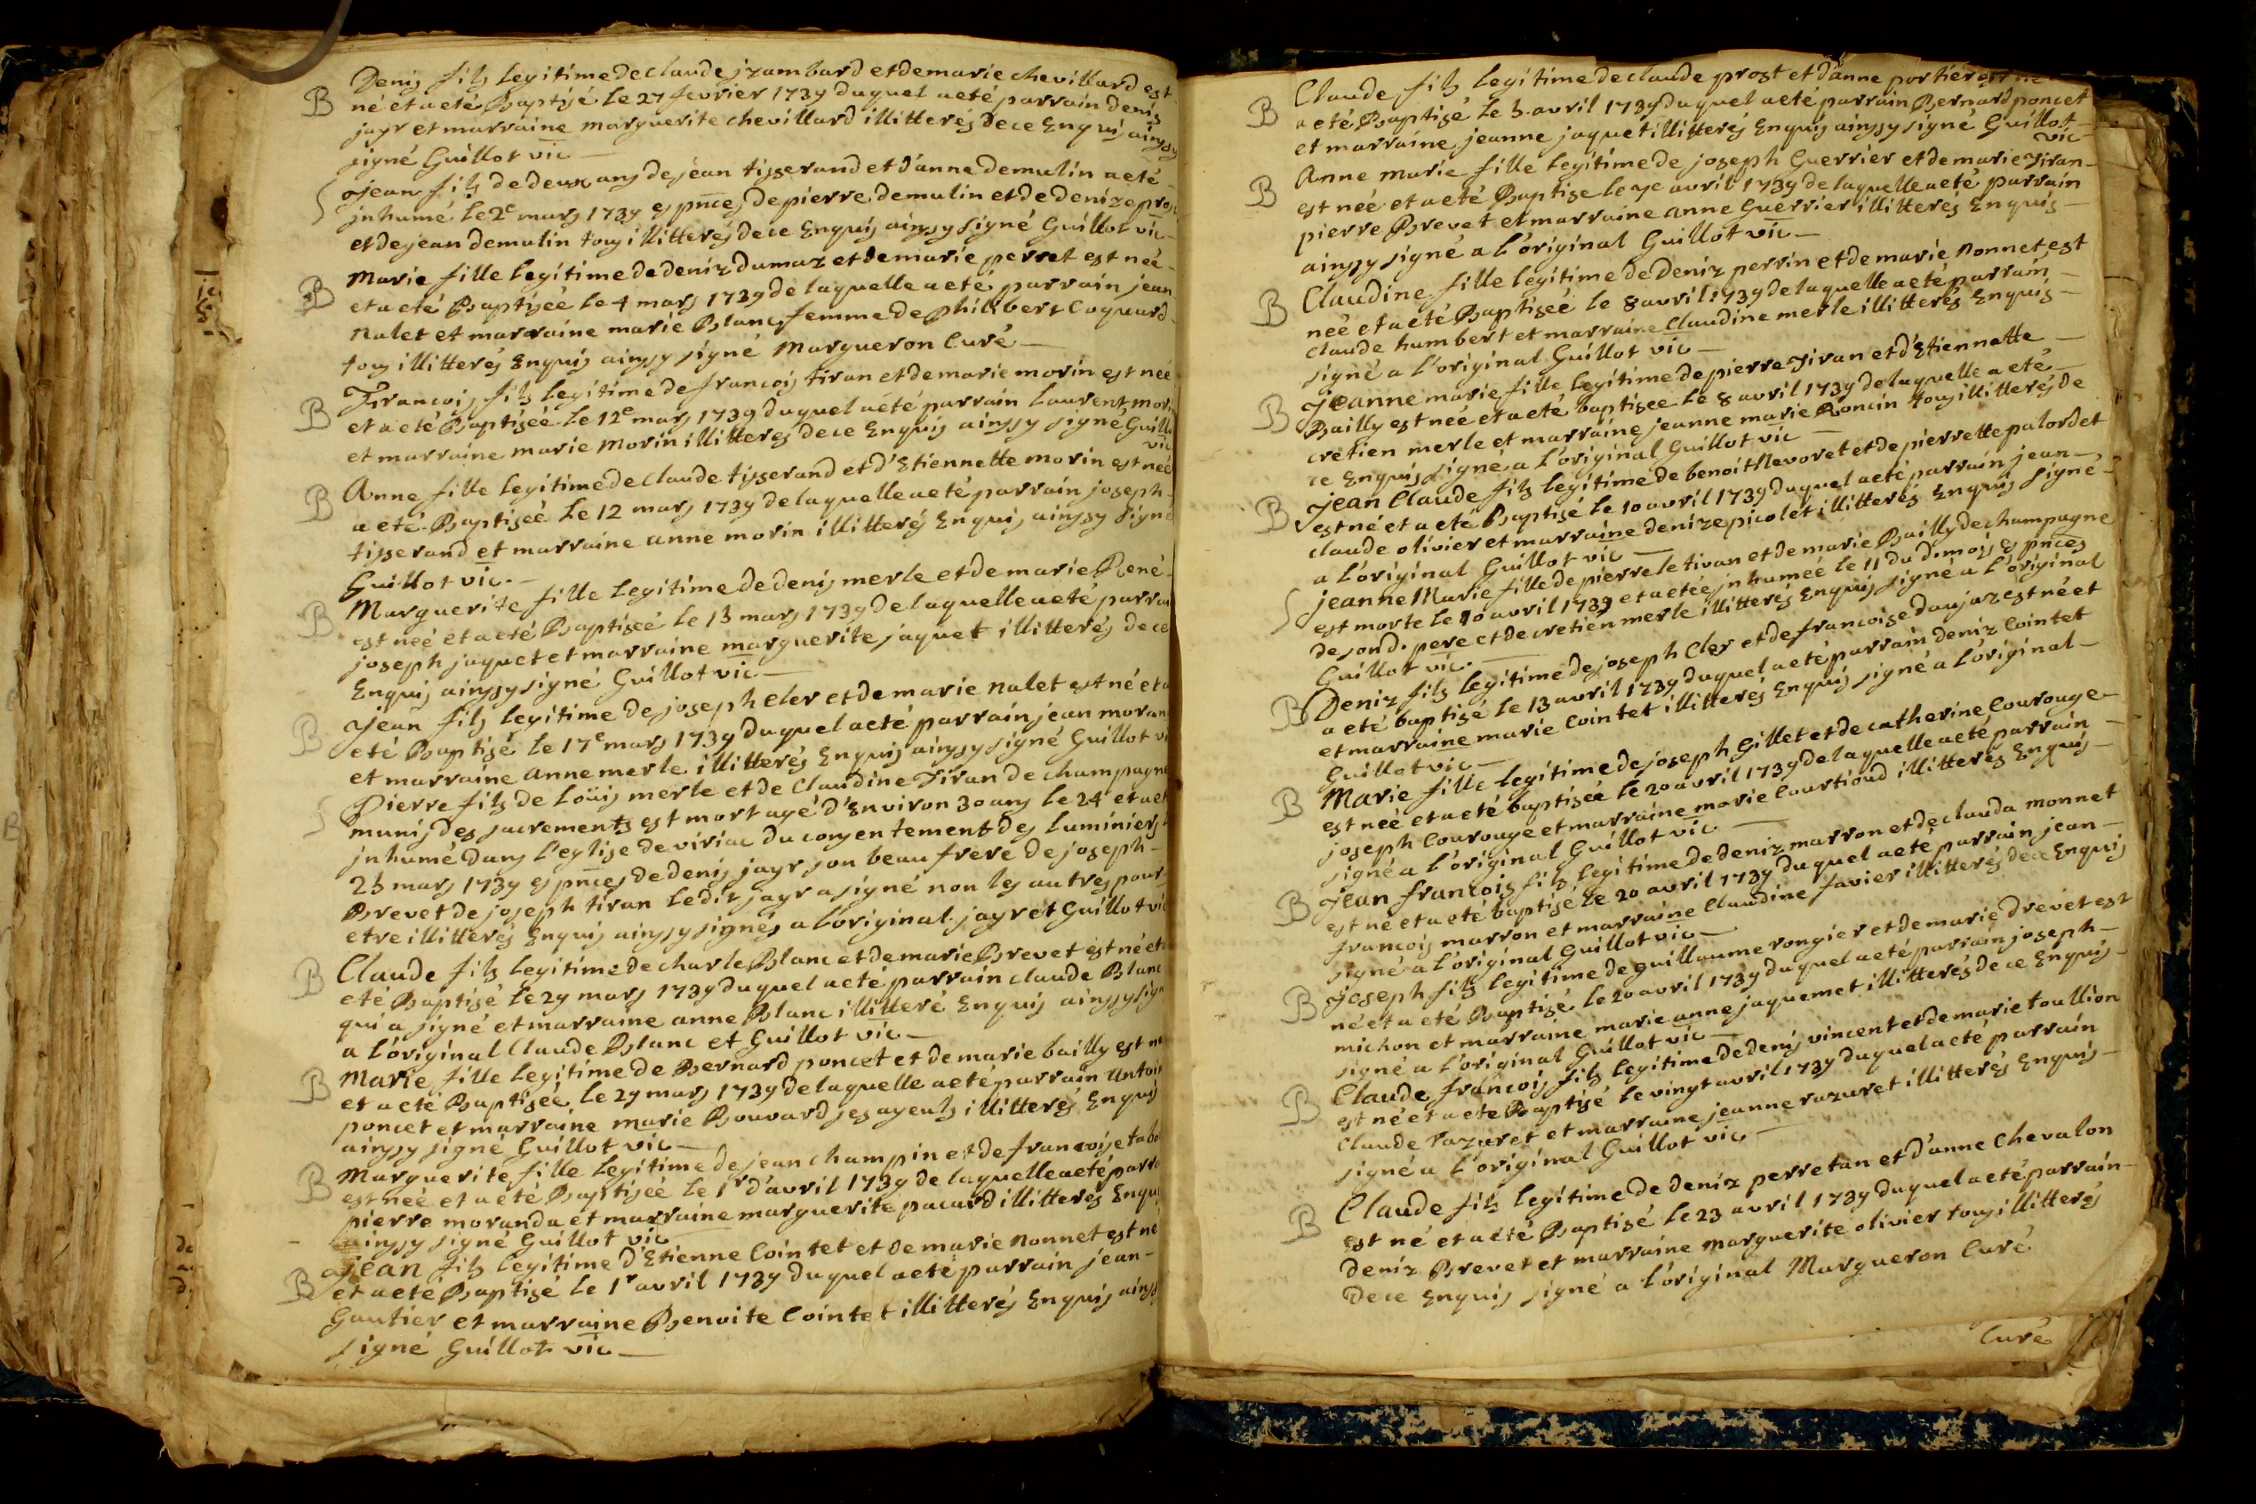 B Denis fils legitime de claude jzambard et de marie chevillard est
né et a eté Baptisé le 27 fevrier 1739 duquel a eté parrain denis
jayr et marraine marguerite chevillard illitterés de ce Enquis ainssy
signé Guillot vic
S jean fils de deux ans de jean tisserand et d'anne demulin a eté
jnhumé le 2e mars 1739 es pnces de pierre demulin et de denize pros
et de jean demulin tous illitterés de ce Enquis ainssy signé Guillot vic
B Marie fille legitime de deniz dumaz et de marie perret est neé
et a eté Baptiseé le 4 mars 1739 de laquelle a eté parrain jean
nalet et marraine marie Blanc femme de philibert Coquard
tous illitterés Enquis ainssy signé Margueron Curé
B Francois fils legitime de francois tiran et de marie morin est neé
et a eté Baptiseé le 12e mars 1739 duquel a eté parrain laurent mori
et marraine marie Morin illitterés de ce Enquis ainssy signé Guillo
vic
B Anne fille legitime de Claude tisserand et d'Etiennette morin est neé
a eté Baptiseé le 12 mars 1739 de laquelle a eté parrain joseph
tisserand et marraine anne morin illitterés Enquis ainssy signé
Guillot vic.
B Marguerite fille legitime de denis merle et de marie René
est neé et a eté Baptiseé le 13 mars 1739 de laquelle a eté parrai
joseph jaquet et marraine marguerite jaquet illitterés de ce
Enquis ainssy signé Guillot vic
B jean fils legitime de joseph Cler et de marie nalet est né et a
eté Baptisé le 17e mars 1739 duquel a eté parrain jean moran
et marraine anne merle illitterés Enquis ainssy signé Guillot vi
S Pierre fils de loüis merle et de Claudine Tiran de champagne
munis des sacrements est mort agé d'Environ 30 ans le 24 et a et
jnhumé dans l'eglise de viriac du consentement des luminiers l
25 mars 1739 es pnces de denis jayr son beau frere de joseph
Brevet de joseph tiran ledit jayr a signé non les autres pour
etre illitterés Enquis ainssy signés a l'original jayr et Guillot vic
B Claude fils legitime de charle Blanc et de marie Brevet est né et
eté Baptisé le 29 mars 1739 duquel a eté parrain claude Blanc
qui a signé et marraine anne Blanc illitteré Enquis ainssy sign
a l'original Claude Blanc et Guillot vic
B Marie fille legitime de Bernard poncet et de marie bailly est ne
et a eté Baptiseé le 29 mars 1739 de laquelle a eté parrain Antoin
poncet et marraine marie Bouvard ses ayeuls illitterés Enquis
ainssy signé Guillot vic
B Marguerite fille legitime de jean champin et de francoise tabo
est neé et a eté Baptiseé le 1r d'avril 1739 de laquelle a eté parra
pierre moranda et marraine marguerite pacard illitterés Enqui
ainssy signé Guillot vic
B jean fils legitime d'Etienne Cointet et de marie nonnet est né
et a eté Baptisé le 1r avril 1739 duquel a eté parrain jean
Gautier et marraine Benoite Cointet illitterés Enquis ainss
signé Guillot vic
B Claude fils legitime de claude prost et d'anne portier est né
a eté Baptisé le 5 avril 1739 duquel a eté parrain Bernard poncet
et marraine jeanne jaquet illitterés Enquis ainssy signé Guillot
vic
B Anne marie fille legitime de joseph Guerrier et de marie Tiran
est neé et a eté Baptise le 7e avril 1739 de laquelle a eté parrain
pierre Brevet et marraine anne Guerrier illitterés Enquis
ainssy signé a l'original Guillot vic
B Claudine fille legitime de deniz perrin et de marie nonnet est
neé et a eté Baptiseé le 8 avril 1739 de laquelle a eté parrain
claude humbert et marraine Claudine merle illitterés Enquis
signé a l'original Guillot vic
B jeanne marie fille legitime de pierre Tiran et d'Etiennette
Bailly est neé et a eté baptiseé le 8 avril 1739 de laquelle a eté
cretien merle et marraine jeanne marie Roncin tous illitterés de
ce Enquis signé a l'original Guillot vic
B jean Claude fils legitime de benoit Nevoret et de pierrette palordet
est né et a eté Baptisé le 10 avril 1739 duquel a eté parrain jean
claude olivier et marraine denize picolet illitterés Enquis signé
a l'original Guillot vic
S jeanne Marie fille de pierre le tiran et de marie Bailly de champagne
est morte le 10 avril 1739 et a eteé jnhumeé le 11 du d. mois es pnces
de son d. pere et de cretien merle illitterés Enquis signé a l'original
Guillot vic.
B Deniz fils legitime de joseph Cler et de francoise daujaz est né et
a eté baptisé le 13 avril 1739 duquel a eté parrain deniz Cointet
et marraine marie Cointet illitterés Enquis signé a l'original
Guillot vic
B Marie fille legitime de joseph Gillet et de catherine Courouge
est neé et a eté baptiseé le 20 avril 1739 de laquelle a eté parrain
joseph Courouge et marraine marie Courtioud illitterés Enquis
signé a l'original Guillot vic
B jean francois fils legitime de deniz marron et de clauda monnet
est né et a eté baptisé le 20 avril 1739 duquel a eté parrain jean
francois marron et marraine Claudine favier illitterés de ce Enquis
signé a l'original Guillot vic
B joseph fils legitime de guillaume rongier et de marie drevet est
né et a eté Baptisé le 20 avril 1739 duquel a eté parrain joseph
michon et marraine marie anne jaquemet illitterés de ce Enquis
signé a l'original Guillot vic
B Claude francois fils legitime de denis vincent et de marie toullion
est né et a eté Baptisé le vingt avril 1739 duquel a eté parrain
Claude razuret et marraine jeanne razuret illitterés Enquis
signé a l'original Guillot vic
B Claude fils legitime de deniz perretan et d'anne Chevalon
est né et a eté Baptisé le 23 avril 1739 duquel a eté parrain
deniz Brevet et marraine Marguerite olivier tous illitterés
de ce Enquis signé a l'original Margueron Curé
Curé